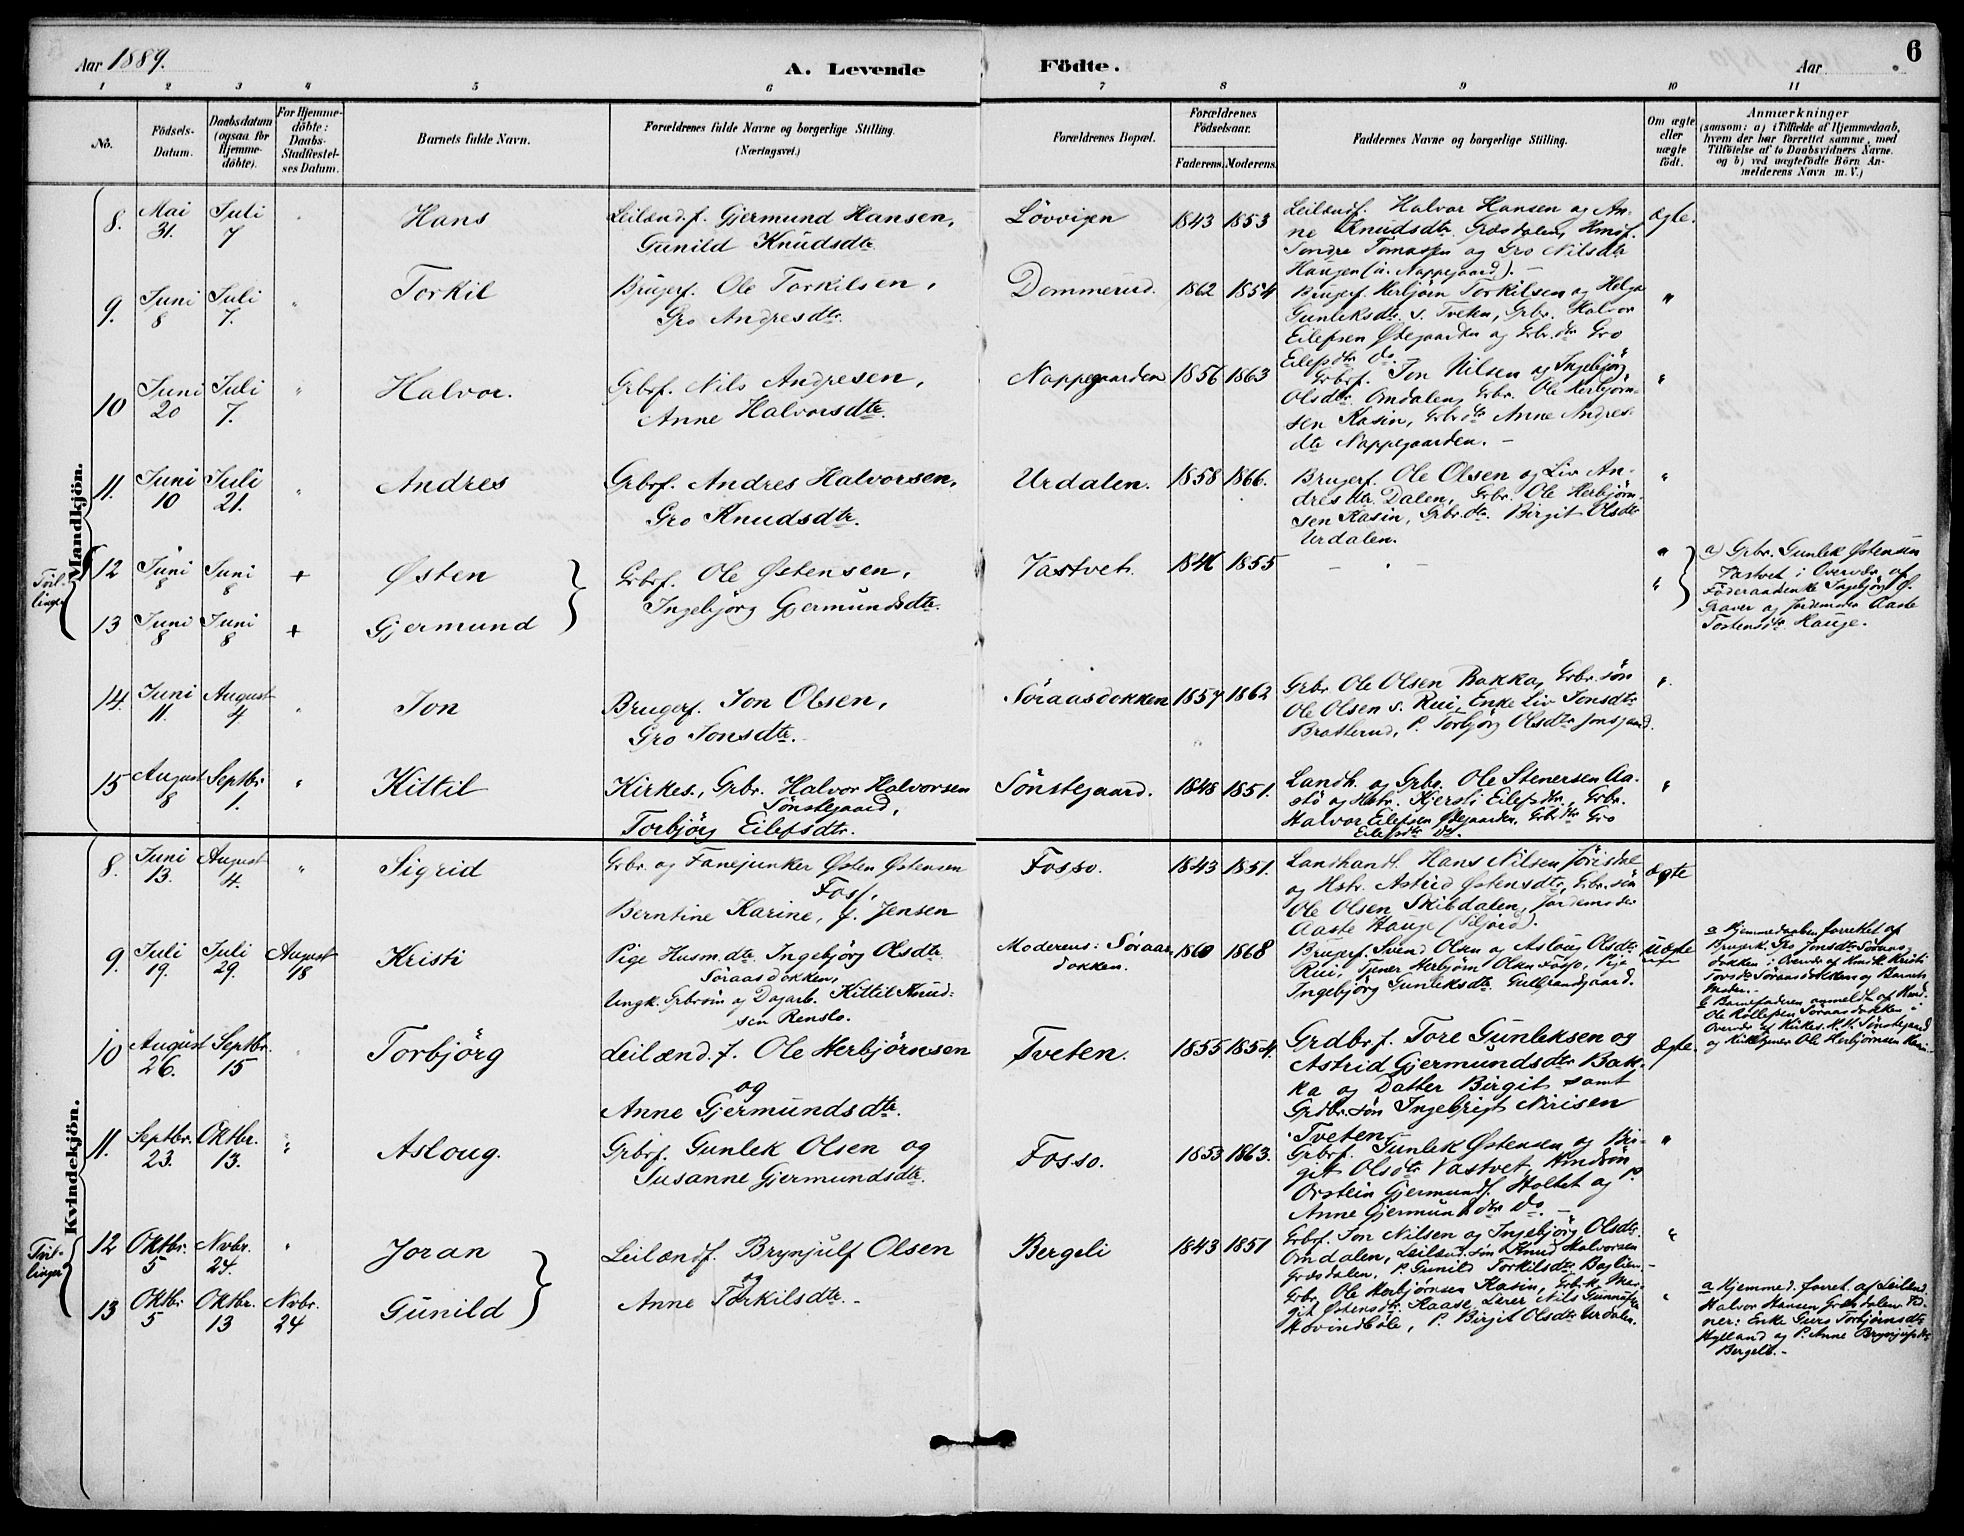 Aar 1889.
A. Levende Födte.
Aar
6
1 2 3 4 5 6 7 8 9 10 11
No.
Födsels-Datum.
Daabsdatum (ogsaa for Hjemme-döbte).
For Hjemme-döbte: Daabs-Stadfestel-ses Datum.
Barnets fulde Navn.
Forældrenes fulde Navne og borgerlige Stilling.
(Næringsvei.)
Forældrenes Bopæl.
Forældrenes Födselsaar.
Faderens. Moderens.
Faddernes Navne og borgerlige Stilling.
Om ægte eller uægte födt.
Anmærkninger
(saasom: a) i Tilfælde af Hjemmedaab, hvem der har forrettet samme, med Tilföielse af to Daabsvidners Navne. og b) ved uægtefödte Börn An-melderens Navn m. V.)
Mandkjön.
8. Mai 31. Juli 7 " Hans
Leilænd.f. Gjermund Hansen,
Gunild Knudsdtr.
Lövvigen 1843 1853
Leilændf. Halvor Hansen og An-
ne Knudsdtr. Græsdalen, Hmsf.
Tondre Tomassen og Gro Nilsdtr
Haugen (ú. Nappegaard). –
Ægte.
9. Juni 8 Juli 7. " Torkil
Brugerf. Ole Torkilsen,
Gro Andresdtr.
Dommerud. 1862 1854
Brugerf. Herbjörn Torkilsen og Helga
Gunleksdtr. s. Tveten, Grbr. Halvor
Eilefsen Östegaarden og Grbr.dtr Gro
Eilefsdtr do.
"
10 Juni 20 Juli 7. " Halvor.
Grbrf. Nils Andresen,
Anne Halvorsdtr.
Nappegaarden 1856 1863
Grbrf. Jon Nilsen og Ingebjörg
Olsdtr. Omdalen, Grbr. Ole Herbjörn-
sen Kasin, Grbr.dtr Anne Andres-
dtr Nappegaarden. –
"
11. Juni 10 Juli 21. " Andres
Grbrf. Andres Halvorsen,
Gro Knudsdtr.
Urdalen. 1858 1866.
Brugerf. Ole Olsen og Liv An-
dresdtr. Dalen, Grbr. Ole Herbjörn-
sen Kasin, Grbr.dtr. Birgit Olsdtr
Urdalen.
"
Tvil-
linger
12 Juni 8 Juni 8 + Østen
13 Juni 8 Juni 8 + Gjermund
Grbrf. Ole Østensen,
Ingebjörg Gjermundsdtr.
Vastvet. 1846 1855
– " –
"
"
a) Grbr. Gunlek Østensen
Vastvet i Overvær af
Föderaadsenke Ingebjörg O.
Graver og Jordemoder Aaste
Tostensdtr. Hauge.
14. Juni 11. August 4 " Jon
Brugerf. Jon Olsen,
Gro Jonsdtr.
Söraasdokken 1857 1862
Grbr. Ole Olsen Bakka, Grbr.sön
Ole Olsen s. Rui, Enke Liv Jonsdtr
Bratterud, P. Torbjörg Olsdtr Jonsgaard.
"
15 August 8 Septbr. 1. " Kittil
Kirkes., Grbr. Halvor Halvorsen
Sönstegaard,
Torbjörg Eilefsdtr.
Sönstegaard. 1848 1851.
Landh. og Grbr. Ole Stenersen Aa-
stö og Hstr. Kjersti Eilefsdtr., Grbr.
Halvor Eilefsen Östegaarden, Grbr.dtr Gro
Eilefsdtr do.
"
Kvindekjön.
8. Juni 13. August 4. " Sigrid
Grbr. og Fanejunker Østen Østensen
Foss,
Berntine Karine, f. Jensen
Fosso. 1843 1851.
Landhandl. Hans Nilsen Jörisdal
og Hstr. Astrid Østensdtr., Grbr. sön
Ole Olsen Skibdalen, Jordemoder
Aaste Hauge (Siljord).
Ægte
9. Juli 19. Juli 29. August 18 Kristi
Pige Husm.dtr. Ingebjörg Olsdtr
Söraasdokken,
Ungk. Grbrsön og Dagarb. Kittil Knud-
sen Renslo.
Moderens: Söraas-
dokken. 1860 1868
Brugerf. Svend Olsen og Aslaug Olsdtr.
Rui, Tjener Herbjörn Olsen Fosso, Pige
Ingebjörg Gunleksdtr. Gulbrandgaard.
Uægte
a Hjemmedaaben forrettet af
Brugerk. Gro Jonsdtr Söraas-
dokken i Overvær af Hmsk. Kristi
Torsdtr Söraasdokken og Barnets
Moder. –
b Barnefaderen anmeldt af Hmd.
Ole Kollefsen Söraasdokken i
Overvær af Kirkes. H. H. Sönstegaard
og Kirketjener Ole Herbjörnsen Kasin. –
10 August 26. Septbr. 15 " Torbjörg
Leilænd.f. Ole Herbjörnsen
og
Anne Gjermundsdtr.
Tveten. 1855 1854.
Grdbrf. Tore Gunleksen og
Astrid Gjermundsdtr Bak-
ka og Datter Birgit samt
Grdbr.sön Ingebrigt Nirisen
Tveten.
Ægte.
11. Septbr. 23. Oktbr. 13. " Asloug.
Grbrf. Gunlek Olsen og
Susanne Gjermundsdtr.
Fosso. 1853 1863.
Grbrf. Gunlek Østensen og Bir-
git Olsdtr Vastvet, Hmdsön
Orstein Gjermunds. Holtet og P.
Anne Gjermundsdtr do. –
"
Tvil-
linger
12 Oktbr. 5 Novbr. 24. " Joran
13 Oktbr. 5 Oktbr. 13 Nvbr. 24 Gunild
Leilændf. Brynjulf Olsen
og
Anne Torkilsdtr. –
Bergeli 1843 1851
Grbrf. Jon Nilsen og Ingebjörg Olsdtr.
Omdalen, Leilænd.sön Knud Halvorsen
Græsdalen, P. Gunild Torkilsdtr Baslien. –
Grbr. Ole Herbjörnsen Kasin, Grbrk. Mar-
git Østensdtr. Kaase, Lærer Nils Gunnulfsen
Hovindböle, P. Birgit Olsdtr Urdalen.
"
"
a Hjemmed. forret. af Leilænd.
Halvor Hansen Græsdalen. Vid-
ner: Enke Guro Torbjörnsdtr
Hylland og P. Anne Brynjulfsdtr
Bergeli. –